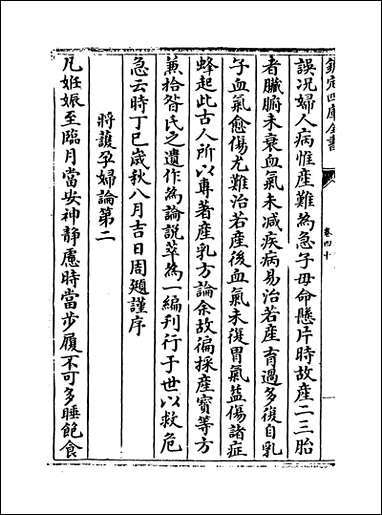 欽定四庫全書
卷四十
誤況婦人病惟産難為急子母命懸片時故産二三胎
者臟腑未衰血氣未減疾病易治若産育過多復自乳
子血氣愈傷尤難治若産後血氣未復胃氣益傷諸症
蜂起此古人所以專著産乳方論余故徧採産寳等方
兼拾昝氏之遺作為論説萃為一編刊行于世以救危
急云時丁巳歲秋八月吉日周頲謹序
將護孕婦論第二
凡妊娠至臨月當安神靜慮時當步履不可多睡飽食